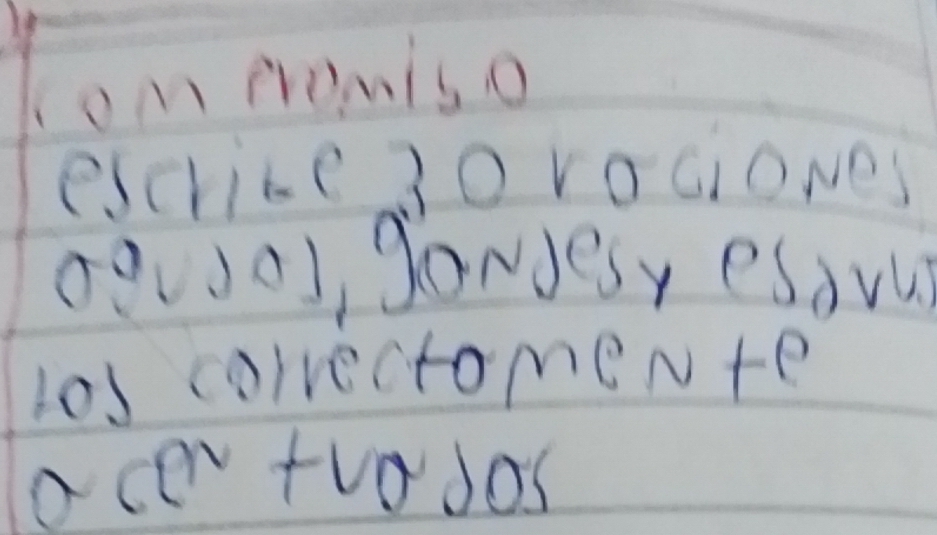 compromiso
escribe 30 raciones
agudas, gandes y esdrus
las correctamente
acentuadas